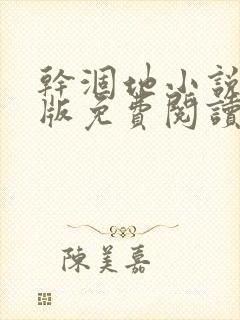 幹涸地小說
版免費閱讀
陳美嘉